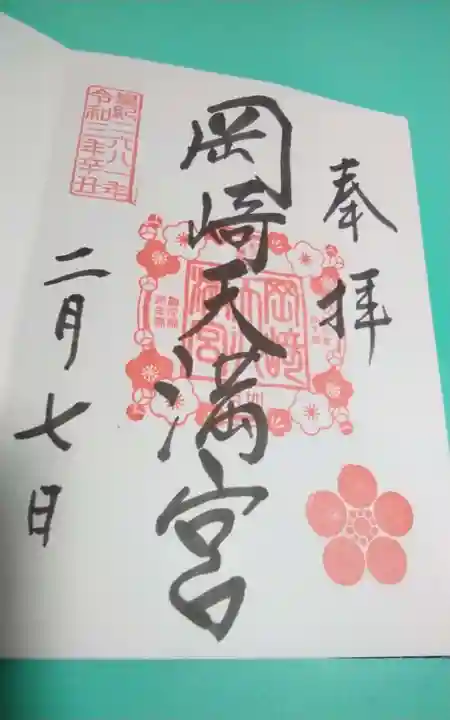 奉拝
岡崎天満宮
皇紀二六八一年
令和三年辛丑
二月七日